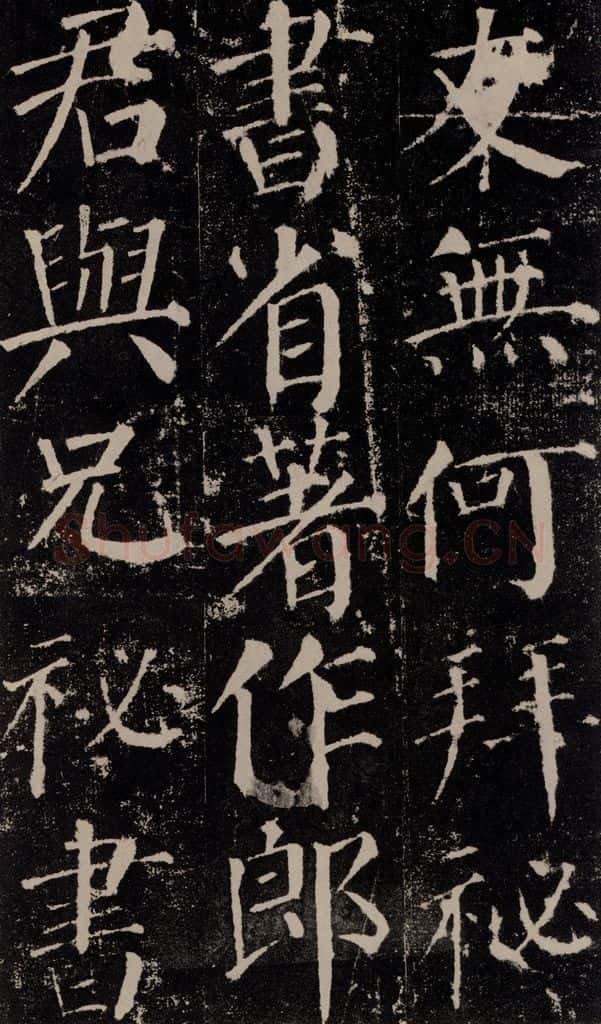 友無何拜祕
書省著作郎
君與兄祕書
Shufawang.CN